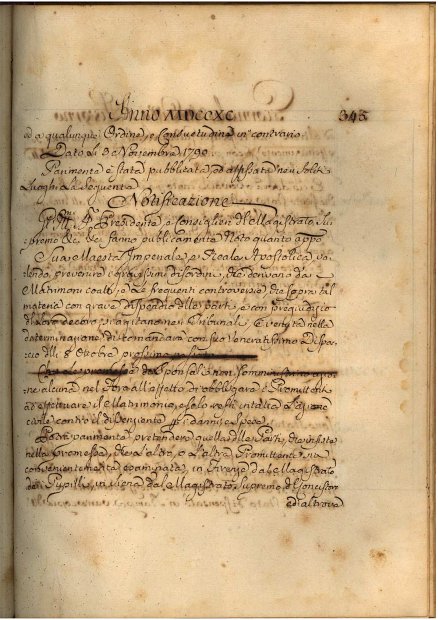 Anno MDCCXC 343
ed a qualunque Ordine, e Consuetudine in contrario.
Dato li 3 Novembre 1790.
Parimente è stata pubblicata, ed affissata nei soliti
Luoghi la seguente
Notificazione
Presidente, e Consiglieri del Magistrato Su
premo &c. &c. fanno pubblicamente Noto quanto app.
Sua Maestà Imperiale, e Reale Apostolica vo
lendo prevenire i gravissimi disordini, che derivano dai
Matrimoni coatti, e le frequenti controversie che sopra tal
materia con grave dispendio delle Parti, e con pregiudizio
del loro decoro si agitano nei Tribunali, è venuta nella
determinazione di comandare con suo Veneratissimo Dispac
cio dell 8 Ottobre prossimo passato
Che le promesse de Sponsali non
ne alcuna nel Foro all'effetto di obbligare i Promittenti
ad effettuare il Matrimonio, e solo resti intatta l'azione
civile contro il disenziente per i danni, e spese.
Potrà parimente pretendere quella delle Parti, che insiste
nella Promessa, che l'altro, o l'altra Promittente sia
convenientemente esaminata, in Firenze dal Magistrato
dei Pupilli, in Siena dal Magistrato Supremo del Concistoro
ed altrove